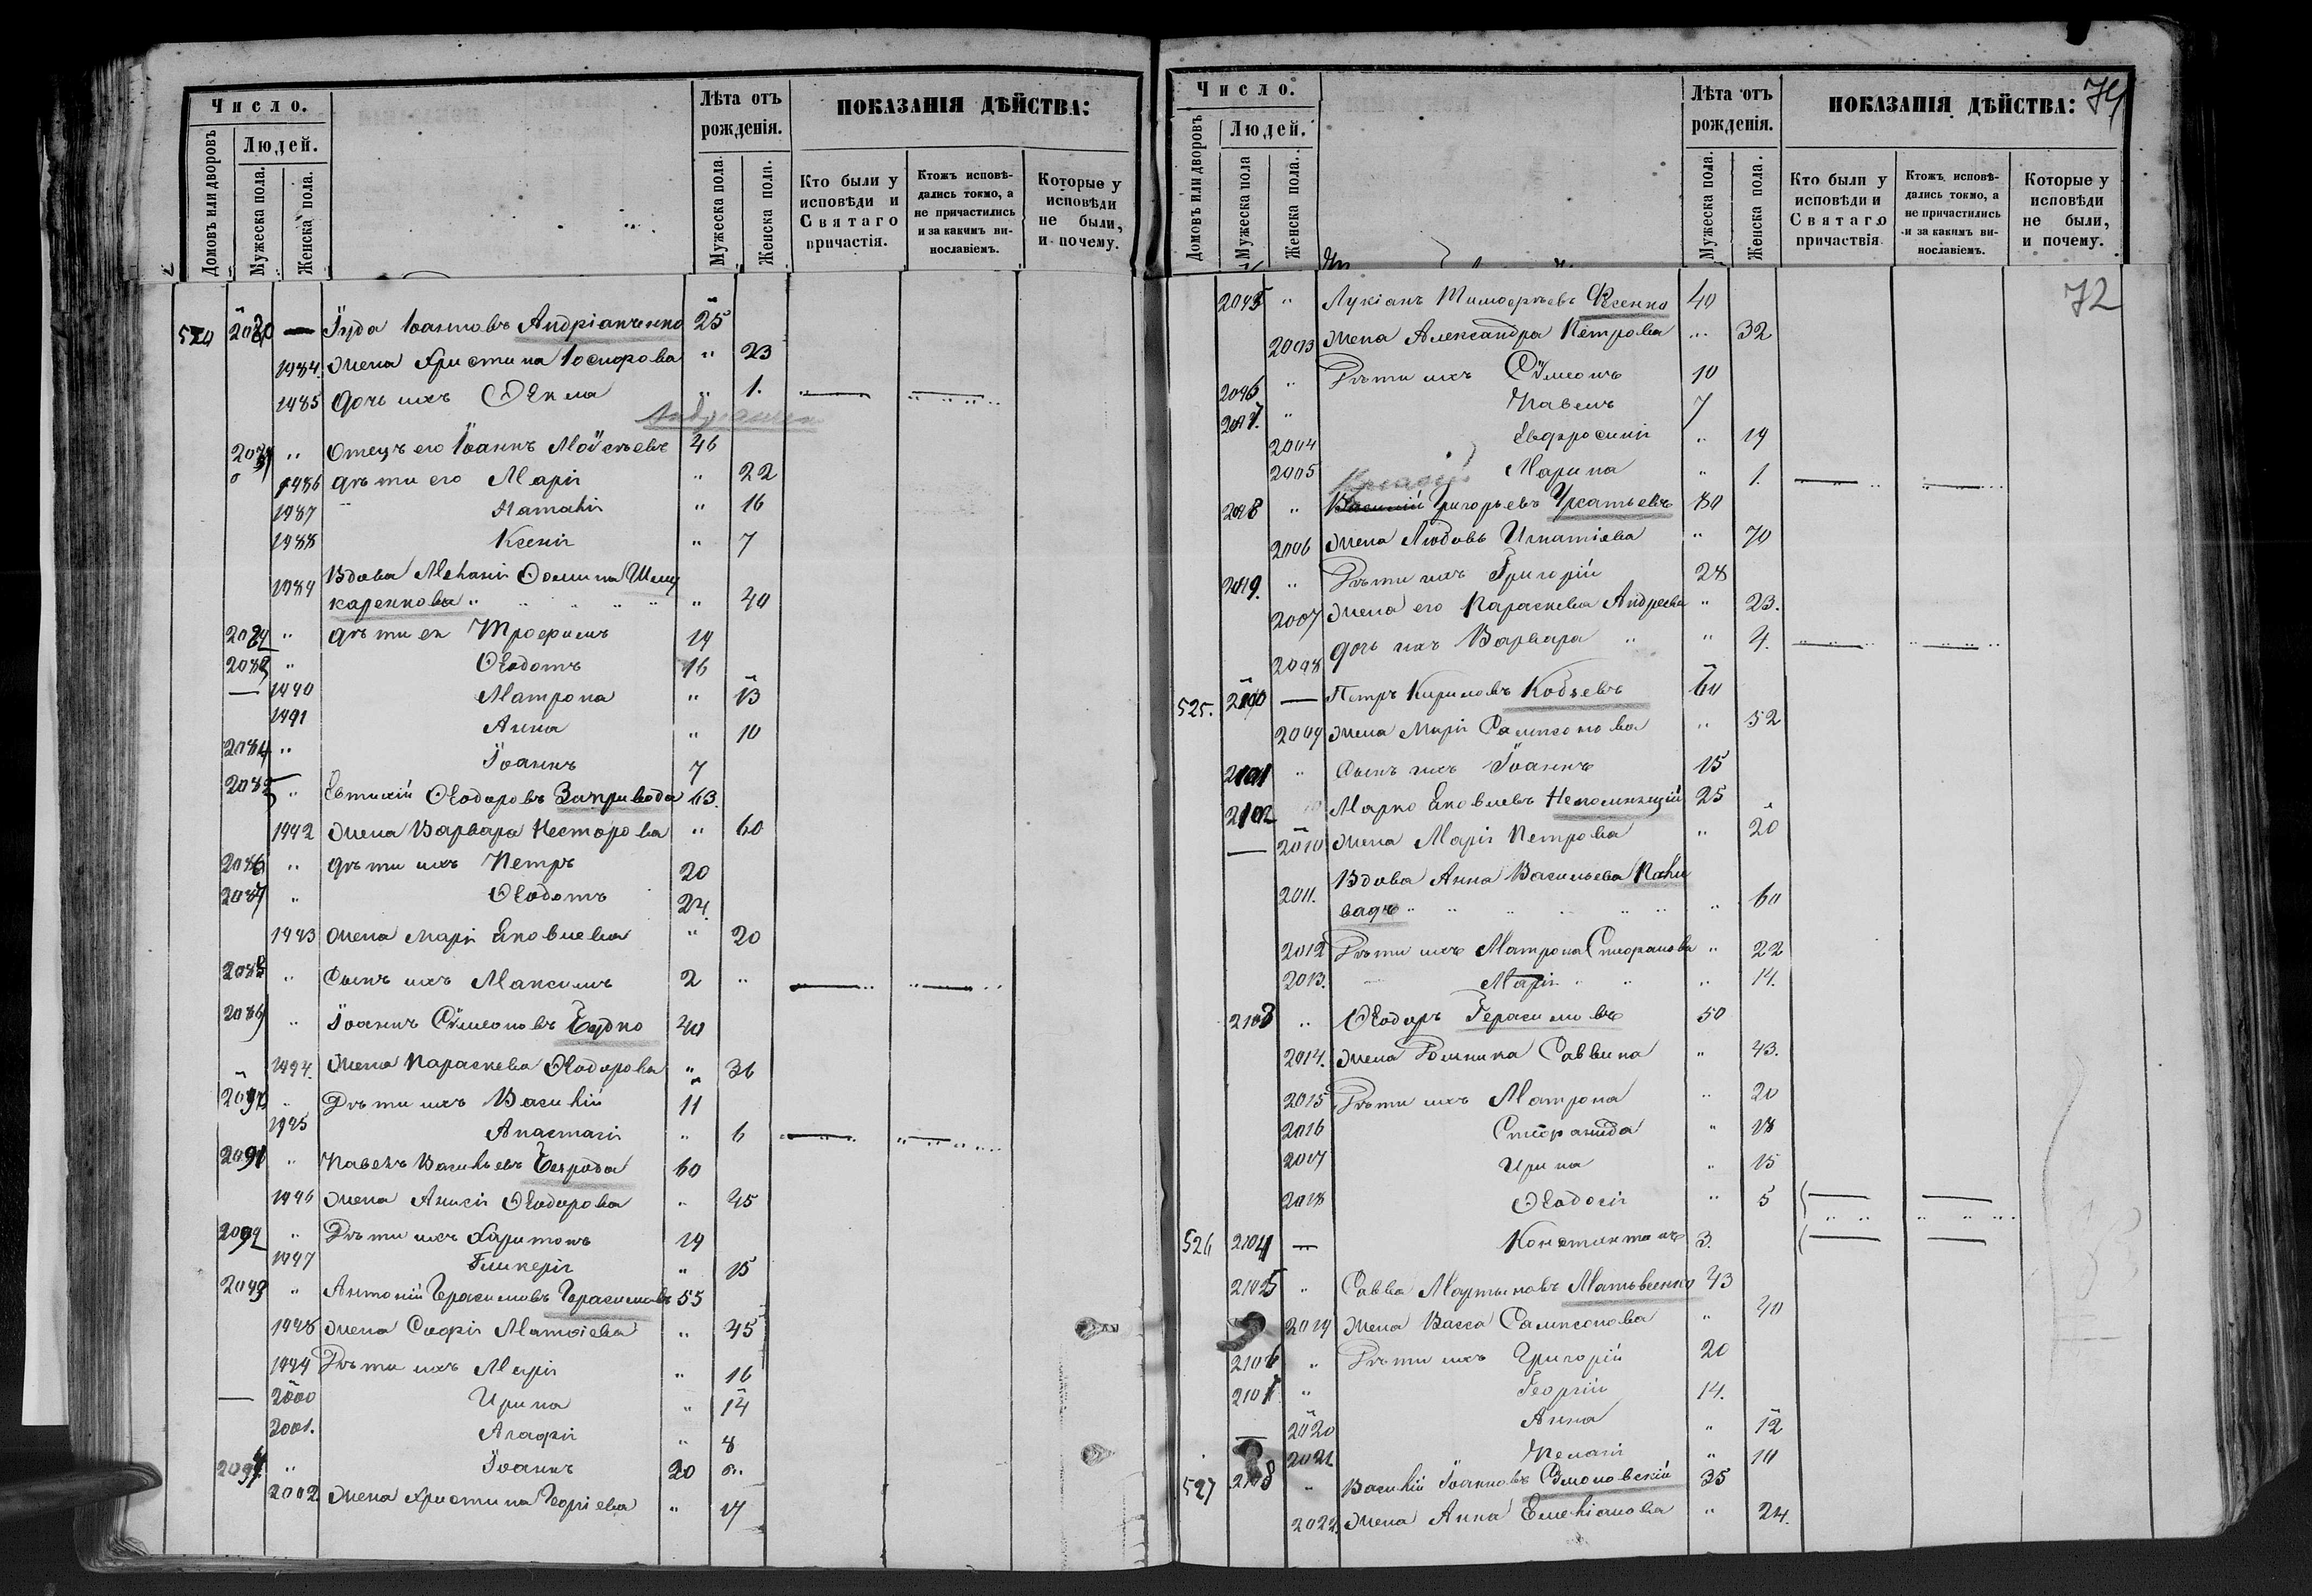 Число.
Лѣта отъ рожденія.
ПОКАЗАНІЯ ДѢЙСТВА:
Домовъ или дворовъ
Людей.
Мужеска пола.
Женска пола.
Мужеска пола.
Женска пола.
Кто были у исповѣди и Святаго причастія.
Ктожъ исповѣдались токмо, а не причастились и за какимъ винославіемъ.
Которые у исповѣди не были, и почему.
524 2080 — Іуда Іоанновъ Андріанченко 25
1984. Жена Христина Іосифова " 23
1985 Дочь ихъ Ѳекла " 1.
Отецъ его Іоаннъ Моѵсѣевъ 46
1986 Дѣти его Марія " 22
1987 Наталія " 16
1988 Ксенія " 7
1989 Вдова Меланія Ѳомина
" 40
2082 " Дѣти ея Трофимъ 19
2083 " Ѳеодотъ 16
— 1990 Матрона " 13
1991 Анна " 10
2084 " Іоаннъ 7
2085 " Евтихій Ѳеодоровъ Заривода 63.
1992 Жена Варвара Несторова " 60
2086 " Дѣти ихъ Петръ 20
2087 " Ѳеодотъ 24.
1993 Жена Марія Яковлева " 20
2088 " Сынъ ихъ Максимъ 2 "
2089 " Іоаннъ Сѵмеоновъ 40
1994. Жена Параскева Ѳеодорова " 36
2090 " Дѣти ихъ Василій 11
1995 Анастасія " 6
2091 " Павелъ Васильевъ 60
1996 Жена Анисія Ѳеодорова " 45
2092 " Дѣти ихъ Харитонъ 19
1997 Гликерія " 15
2093 " Антоній Герасимовъ Герасимовъ 55
1998 Жена Софія Матѳіева " 45
1999 Дѣти ихъ Марія " 16
— 2000 Ирина " 14
2001. Агафія " 8
2094 " Іоаннъ 20
2002 Жена Христина Георгіева " 17
Число.
Лѣта отъ рожденія.
ПОКАЗАНІЯ ДѢЙСТВА:
74
Домовъ или дворовъ
Людей.
Мужеска пола
Женска пола.
Мужеска пола.
Женска пола.
Кто были у исповѣди и Святаго причаствія
Ктожъ исповѣдались токмо, а не причастились и за какимъ винославіемъ.
Которые у исповѣди не были, и почему.
72
2095 " Лукіанъ Тимофѣевъ 40
2003 Жена Александра Петрова " 32
2096 " Дѣти ихъ Сѵмеонъ 10
2097. " Павелъ 7
2004 Евфросинія " 19
2005 Марина " 1.
2098 " Василій Григорьевъ Усатьевъ 80
2006 Жена Любовь Игнатіева " 70
2099. " Дѣти ихъ Григорій 28
2007 Жена его Параскева Андреева " 23.
2008 Дочь ихъ Варвара " " 4.
525. 2100 — Петръ Кириловъ Кобзевъ 60
2009 Жена Марія Сампсонова " 52
2101 " Сынъ ихъ Іоаннъ 15
2102 Марко Яковлевъ 25
— 2010 Жена Марія Петрова " 20
2011. Вдова Анна Васильева
" 60
2012 Дѣти ихъ Матрона Стефанова " 22
2013. Марія " 14.
2103 " Ѳеодоръ Герасимовъ 50
2014. Жена Домникa Саввина " 43.
2015 Дѣти ихъ Матрона " 20
2016 Стефанида " 18
2017 Ирина " 15
2018 Ѳеодосія " 5
526 2104 — Константинъ 3.
2105 " Савва Мартыновъ Матвеенко 43
2019 Жена Васса Сампсонова " 40
2106 " Дѣти ихъ Григорій 20
2107 " Георгій 14.
2020 Анна " 12
2021 Пелагія " 10
527 2108 " Василій Іоанновъ 35
2022. Жена Анна Емеліанова " 24.